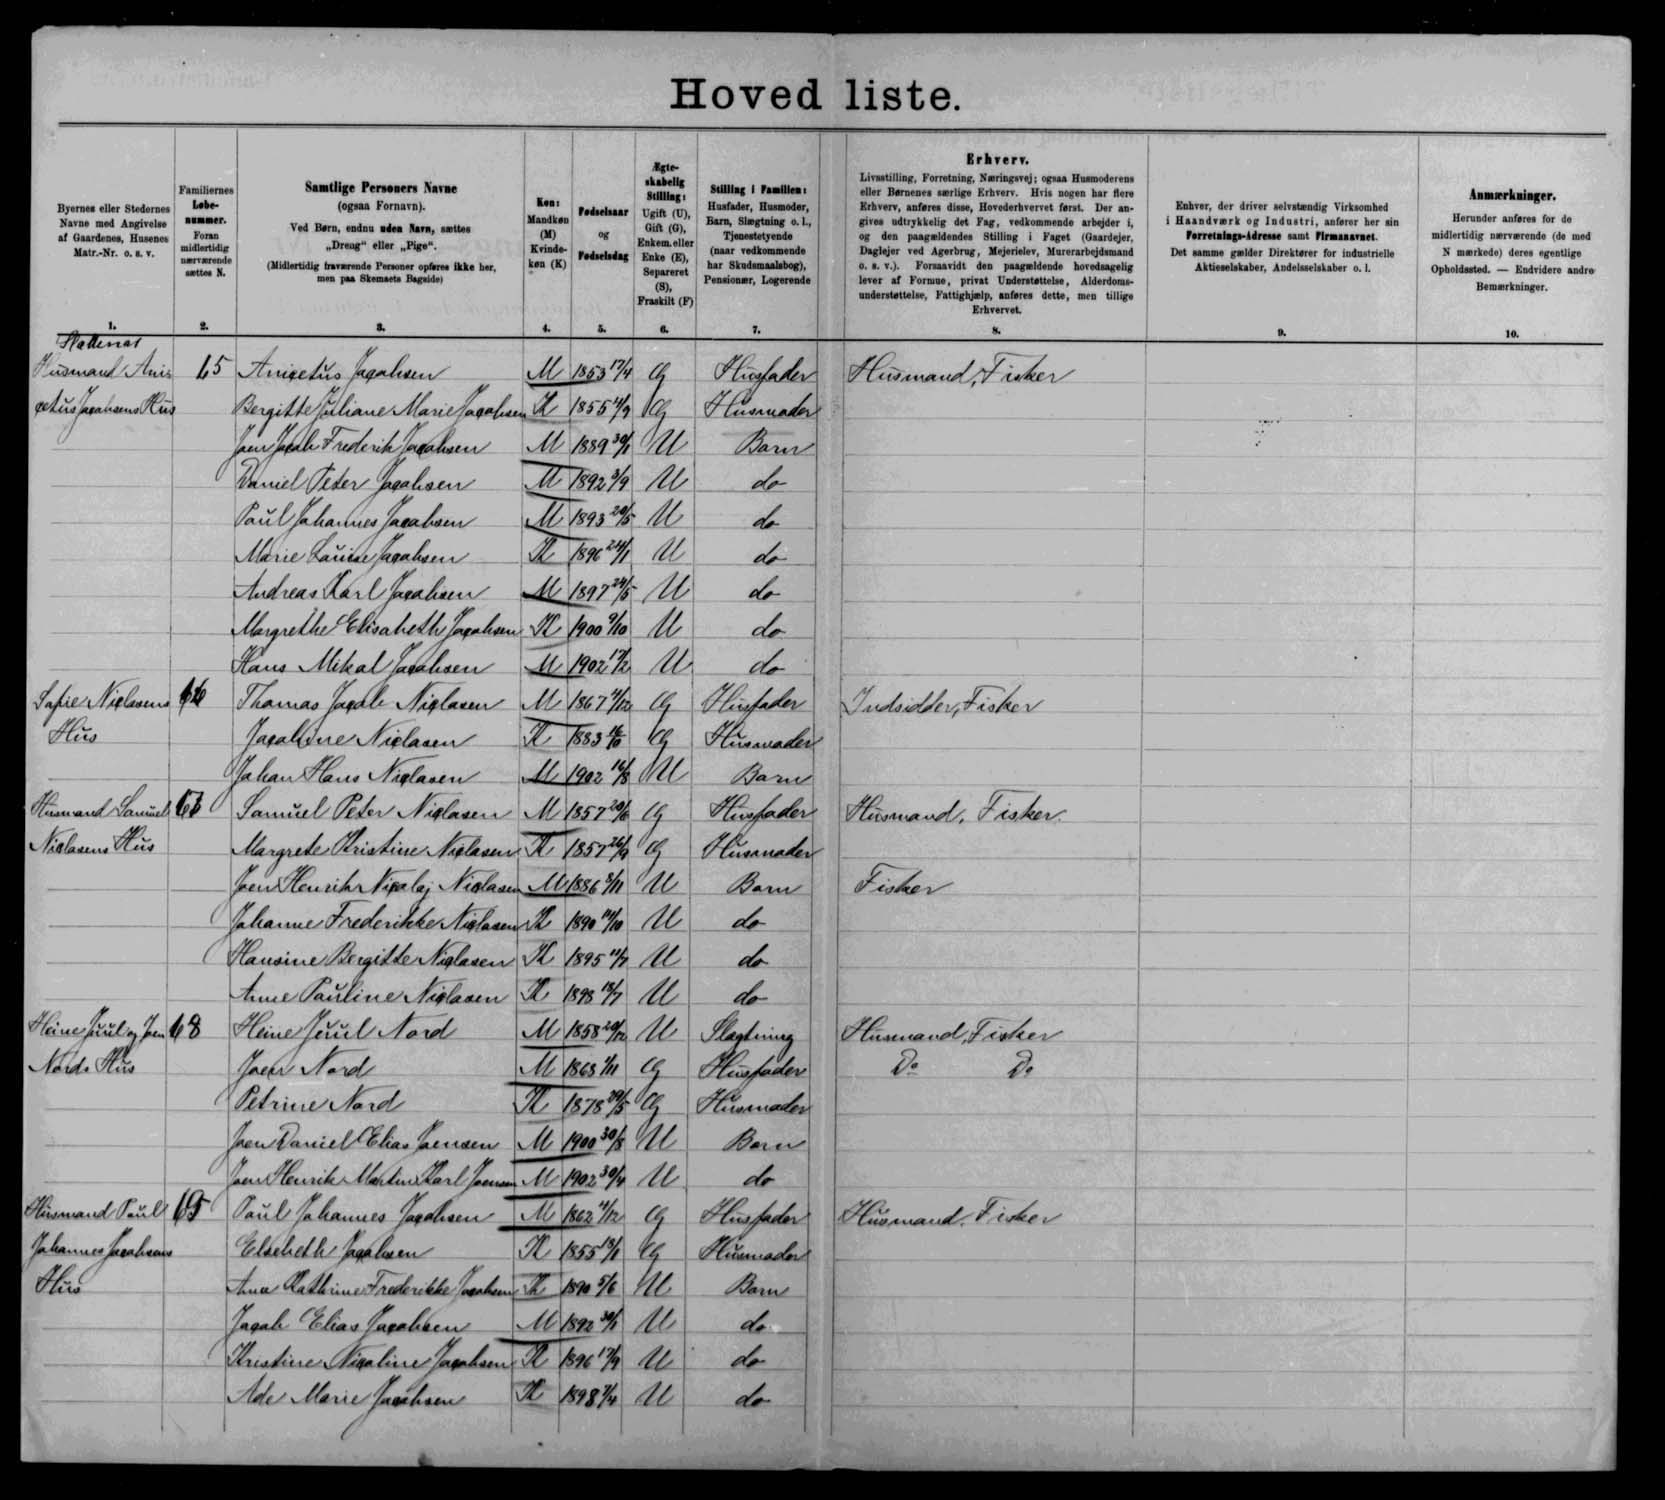 Hovedliste.
Byernes eller Stedernes
Navne med Angivelse
af Gaardenes, Husenes
Matr.-Nr. o. s. v.
1.
Familiernes
Løbe-
nummer.
Foran
midlertidig
nærværende
sættes N.
2.
Samtlige Personers Navne
(ogsaa Fornavn).
Ved Børn, endnu uden Navn, sættes
„Dreng“ eller „Pige“.
(Midlertidig fraværende Personer opføres ikke her,
men paa Skemaets Bagside)
3.
Køn:
Mandkøn
(M)
Kvinde-
køn (K)
4.
Fødselsaar
og
Fødselsdag
5.
Ægte-
skabelig
Stilling:
Ugift (U),
Gift (G),
Enkem. eller
Enke (E),
Separeret
(S),
Fraskilt (F)
6.
Stilling i Familien:
Husfader, Husmoder,
Barn, Slægtning o. l.,
Tjenestetyende
(naar vedkommende
har Skudsmaalsbog),
Pensionær, Logerende
7.
Erhverv.
Livsstilling, Forretning, Næringsvej; ogsaa Husmoderens
eller Børnenes særlige Erhverv. Hvis nogen har flere
Erhverv, anføres disse, Hovederhvervet først. Der an-
gives udtrykkelig det Fag, vedkommende arbejder i,
og den paagældendes Stilling i Faget (Gaardejer,
Daglejer ved Agerbrug, Mejerielev, Murerarbejdsmand
o. s. v.). Forsaavidt den paagældende hovedsagelig
lever af Formue, privat Understøttelse, Alderdoms-
understøttelse, Fattighjælp, anføres dette, men tillige
Erhvervet.
8.
Enhver, der driver selvstændig Virksomhed
i Haandværk og Industri, anfører her sin
Forretnings-Adresse samt Firmanavnet.
Det samme gælder Direktører for industrielle
Aktieselskaber, Andelsselskaber o. l.
9.
Anmærkninger.
Herunder anføres for de
midlertidig nærværende (de med
N mærkede) deres egentlige
Opholdssted. — Endvidere andre
Bemærkninger.
10.
Husmand Ani- 65 Anicetus Jacobsen M 1853 17/4 G Husfader Husmand, Fisker
cetus Jacobsens Hus Bergitte Juliane Marie Jacobsen K 1855 G Husmoder
Joen Jacob Frederik Jacobsen M 1889 30/1 U Barn
Daniel Peter Jacobsen M 1892 3/9 U do
Paul Johannes Jacobsen M 1893 20/5 U do
Marie Louise Jacobsen K 1896 24/1 U do
Andreas Karl Jacobsen M 1897 24/5 U do
Margrethe Elisabeth Jacobsen K 1900 9/10 U do
Hans Mikal Jacobsen M 1902 17/2 U do
Sofie Niclasens 66 Thomas Jacob Niclasen M 1867 G Husfader Indsidder, Fisker
Hus Jacobine Niclasen K 1883 G Husmoder
Johan Hans Niclasen M 1902 16/8 U Barn
Husmand Samuel 67 Samuel Peter Niclasen M 1857 20/6 G Husfader Husmand, Fisker.
Niclasens Hus Margrete Kristine Niclasen K 1857 26/9 G Husmoder
Joen Henrik Nicolaj Niclasen M 1886 8/11 U Barn Fisker
Johanne Frederikke Niclasen K 1890 14/10 U do
Hansine Bergitte Niclasen K 1895 11/7 U do
Anne Pauline Niclasen K 1898 18/7 U do
Heine Juul og Joen 68 Heine Juul Nord M 1858 20/12 U Slægtning Husmand, Fisker
Nords Hus Joen Nord M 1868 1/11 G Husfader Do Do
Petrine Nord K 1878 29/5 G Husmoder
Joen Daniel Elias Joensen M 1900 30/8 U Barn
Joen Henrik Martin Karl Joensen M 1902 30/4 U do
Husmand Paul 69 Paul Johannes Jacobsen M 1862 11/12 G Husfader Husmand, Fisker
Johannes Jacobsens Elsebeth Jacobsen K 1855 18/1 G Husmoder
Hus Ana Kathrine Frederikke Jacobsen K 1890 5/6 U Barn
Jacob Elias Jacobsen M 1892 30/1 U do
Kristine Nicoline Jacobsen K 1896 17/9 U do
Ade Marie Jacobsen K 1898 7/4 U do